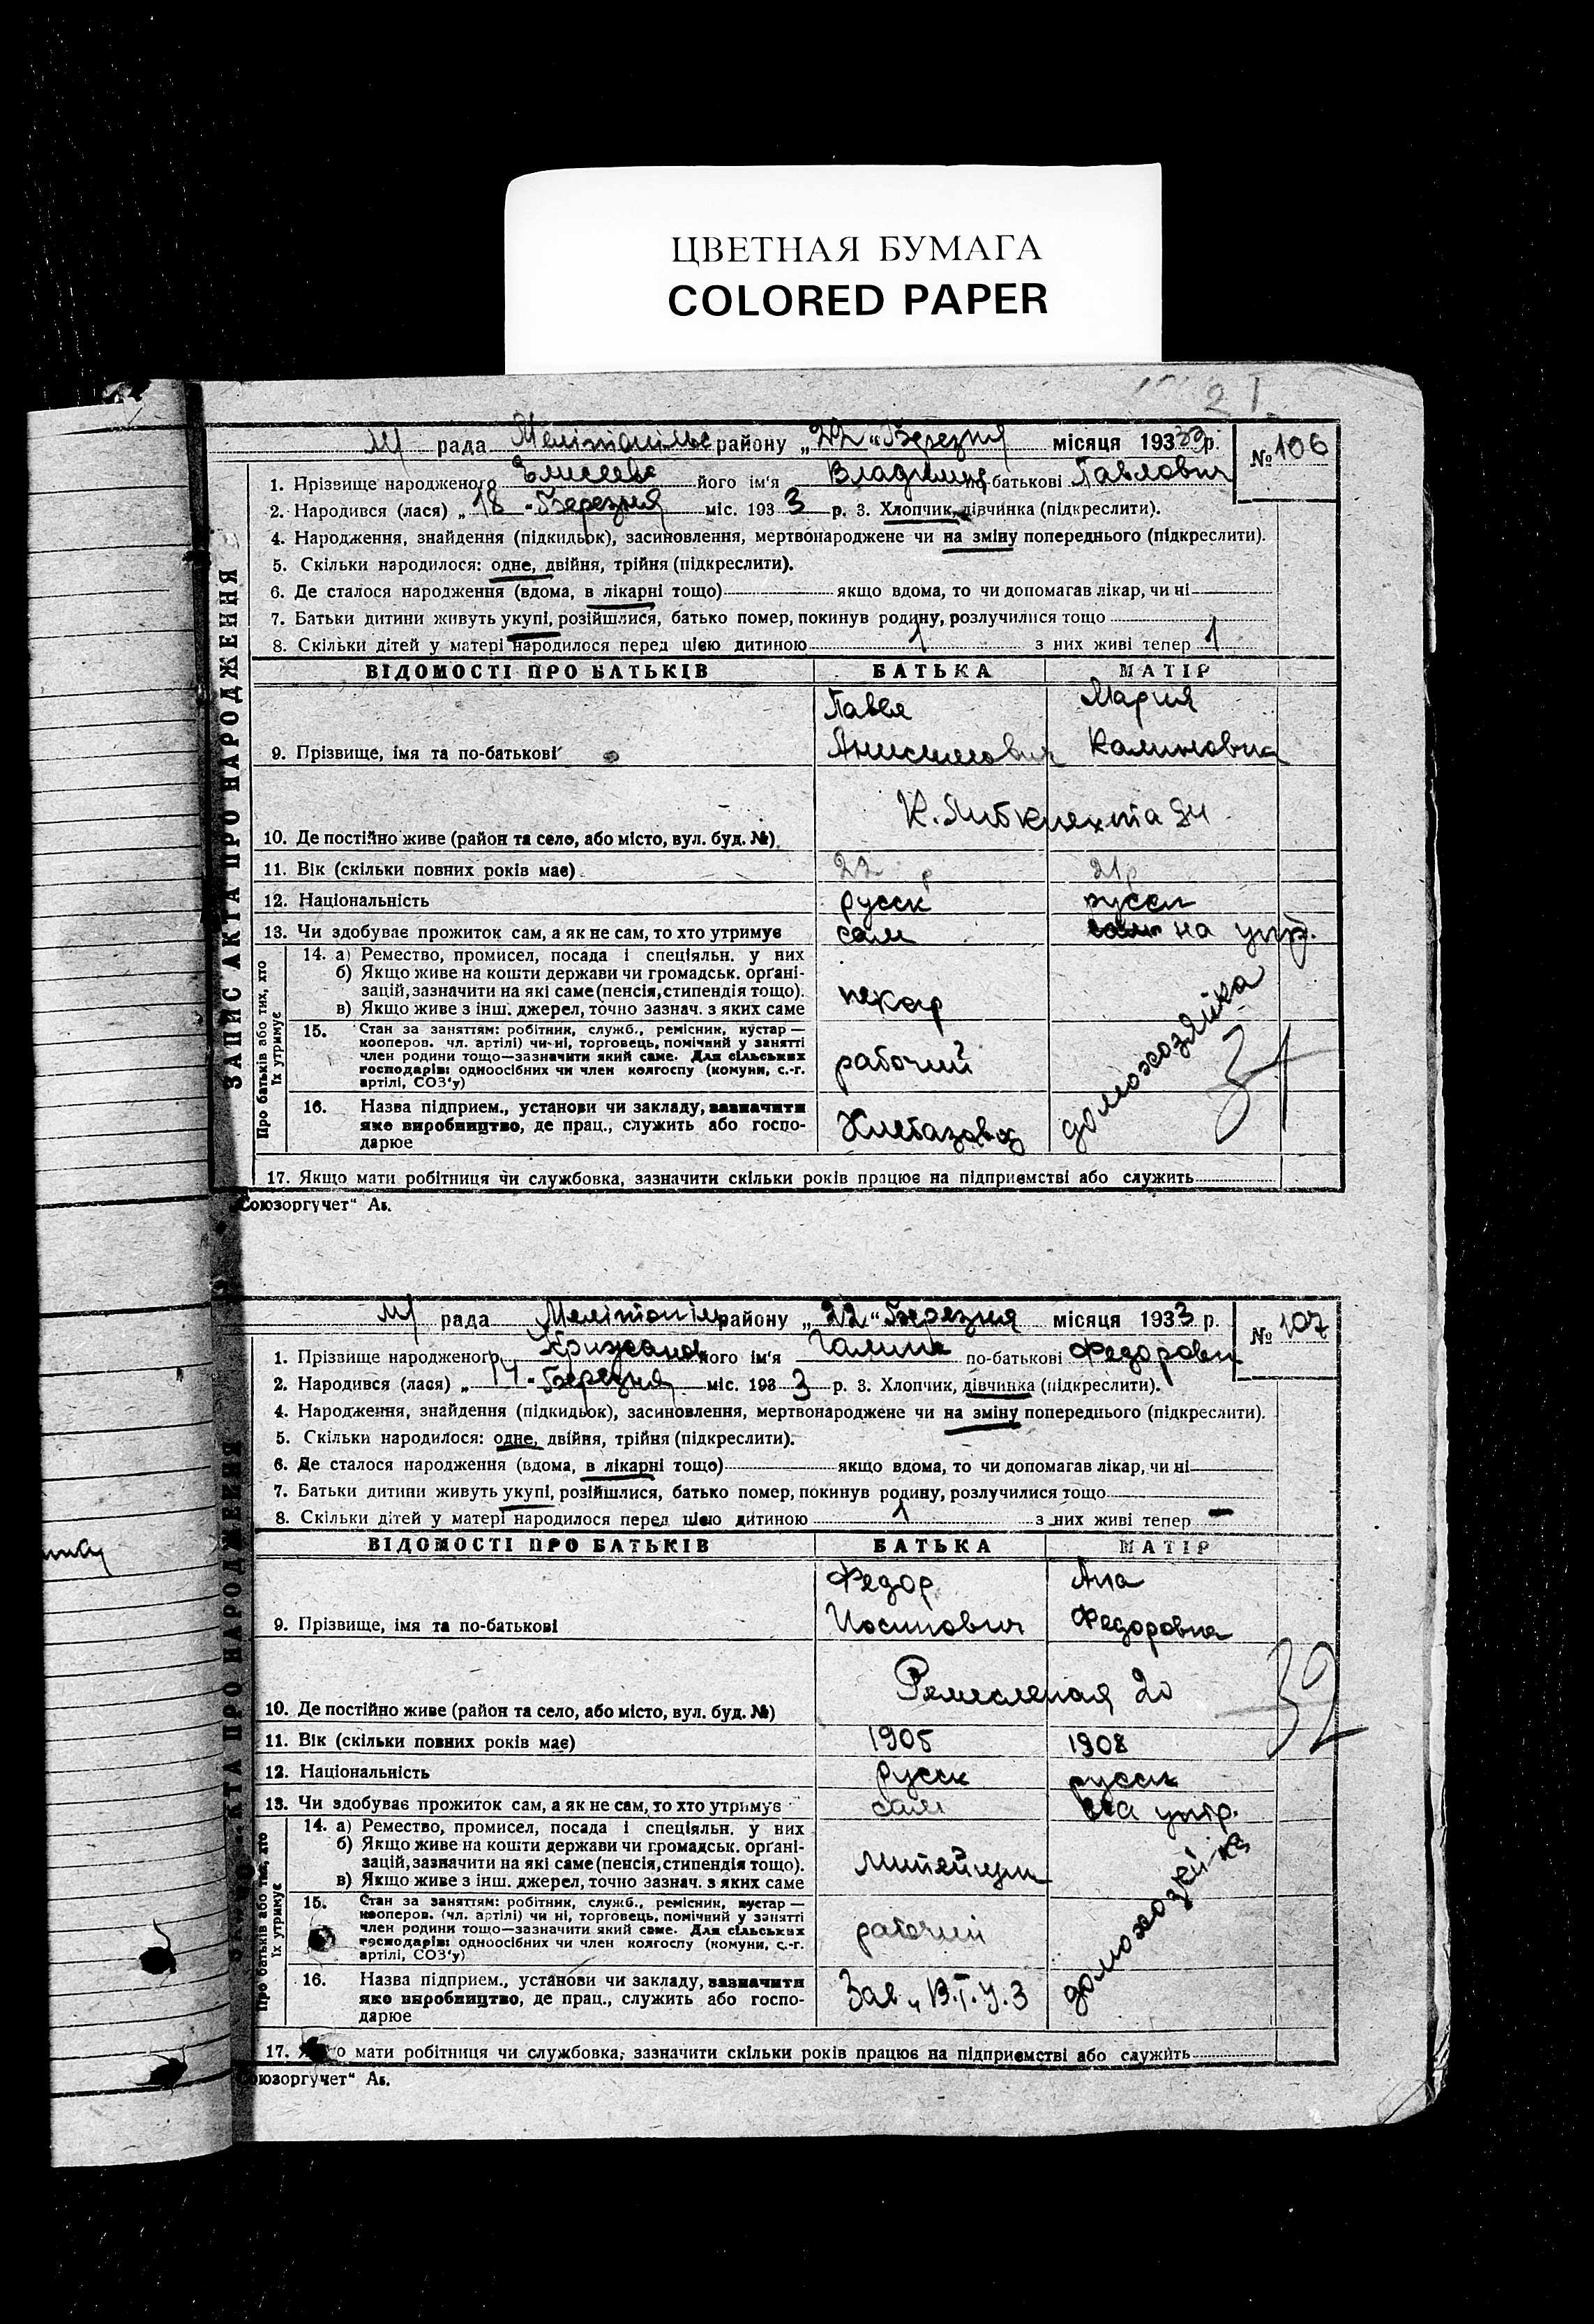 ЦВЕТНАЯ БУМАГА
COLORED PAPER
21
ЗАПИС АКТА ПРО НАРОДЖЕННЯ
М/ рада Мелітопільс району „22“ Березня місяця 1933 р. № 106
1. Прізвище народженого Елисеев його ім'я Владимир по-батькові Павлович
2. Народився (лася) „18 “ Березня міс. 193 3 р. 3. Хлопчик, дівчинка (підкреслити).
4. Народження, знайдення (підкидьок), засиновлення, мертвонароджене чи на зміну попереднього (підкреслити).
5. Скільки народилося: одне, двійня, трійня (підкреслити).
6. Де сталося народження (вдома, в лікарні тощо) якщо вдома, то чи допомагав лікар, чи ні
7. Батьки дитини живуть укупі, розійшлися, батько помер, покинув родину, розлучилися тощо
8. Скільки дітей у матері народилося перед цією дитиною 1 з них живі тепер 1
ВІДОМОСТІ ПРО БАТЬКІВ БАТЬКА МАТІР
Павел Мария
9. Прізвище, імя та по-батькові Анисимович Калиновна
К. Либкнехта
10. Де постійно живе (район та село, або місто, вул. буд. №)
11. Вік (скільки повних років має) 22 р 21 р
12. Національність русск русск
13. Чи здобуває прожиток сам, а як не сам, то хто утримує сам на утр.
Про батьків або тих, хто їх утримує
14. а) Ремество, промисел, посада і спеціяльн. у них
б) Якщо живе на кошти держави чи громадськ. органі-
зацій, зазначити на які саме (пенсія, стипендія тощо).
в) Якщо живе з інш. джерел, точно зазнач. з яких саме
пекар
домохозяйка
15. Стан за заняттям: робітник, служб., ремісник, кустар —
кооперов. чл. артілі) чи-ні, торговець, помічний у занятті
член родини тощо—зазначити який саме. Для сільських
господарів: одноосібних чи член колгоспу (комуни, с.-г.
артілі, СОЗ'у)
рабочий
31
16. Назва підприєм., установи чи закладу, зазначити
яке виробництво, де прац., служить або госпо-
дарює
Хлебазавод
17. Якщо мати робітниця чи службовка, зазначити скільки років працює на підприємстві або служить
„Союзоргучет“ Аз.
М/ рада Мелітопільс району „22“ Березня місяця 1933 р. № 107
1. Прізвище народженого Крижанов його ім'я Галина по-батькові Федоровн
2. Народився (лася) „ 14 “ Березня міс. 193 3 р. 3. Хлопчик, дівчинка (підкреслити).
4. Народження, знайдення (підкидьок), засиновлення, мертвонароджене чи на зміну попереднього (підкреслити).
5. Скільки народилося: одне, двійня, трійня (підкреслити).
6. Де сталося народження (вдома, в лікарні тощо) якщо вдома, то чи допомагав лікар, чи ні
7. Батьки дитини живуть укупі, розійшлися, батько помер, покинув родину, розлучилися тощо
8. Скільки дітей у матері народилося перед цією дитиною 1 з них живі тепер —
ВІДОМОСТІ ПРО БАТЬКІВ БАТЬКА МАТІР
Федор Ана
9. Прізвище, імя та по-батькові Иосипович Федоровна
Ремесленая 20
32
10. Де постійно живе (район та село, або місто, вул. буд. №)
11. Вік (скільки повних років має) 1905 1908
12. Національність русск русск
13. Чи здобуває прожиток сам, а як не сам, то хто утримує сам на утр.
Про батьків або тих, хто їх утримує
14. а) Ремество, промисел, посада і спеціяльн. у них
б) Якщо живе на кошти держави чи громадськ. органі-
зацій, зазначити на які саме (пенсія, стипендія тощо).
в) Якщо живе з інш. джерел, точно зазнач. з яких саме
литейщик
домохозяйка
15. Стан за заняттям: робітник, служб., ремісник, кустар —
кооперов. (чл. артілі) чи ні, торговець, помічний у занятті
член родини тощо—зазначити який саме. Для сільських
господарів: одноосібних чи член колгоспу (комуни, с.-г.
артілі, СОЗ'у)
рабочий
16. Назва підприєм., установи чи закладу, зазначити
яке виробництво, де прац., служить або госпо-
дарює
Зав „ В.Т.У.З
17. Якщо мати робітниця чи службовка, зазначити скільки років працює на підприємстві або служить
„Союзоргучет“ Аз.